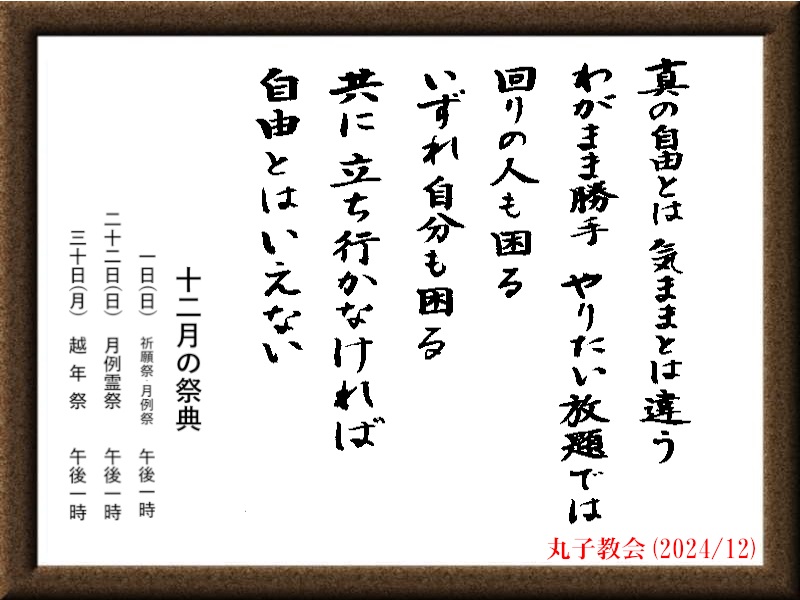 真の自由とは 気ままとは違う
わがまま勝手 やりたい放題では
回りの人も困る
いずれ自分も困る
共に立ち行かなければ
自由とはいえない
十二月の祭典
一日(日) 祈願祭・月例祭 午後一時
二十二日(日) 月例霊祭 午後一時
三十日(月) 越年祭 午後一時
丸子教会(2024/12)